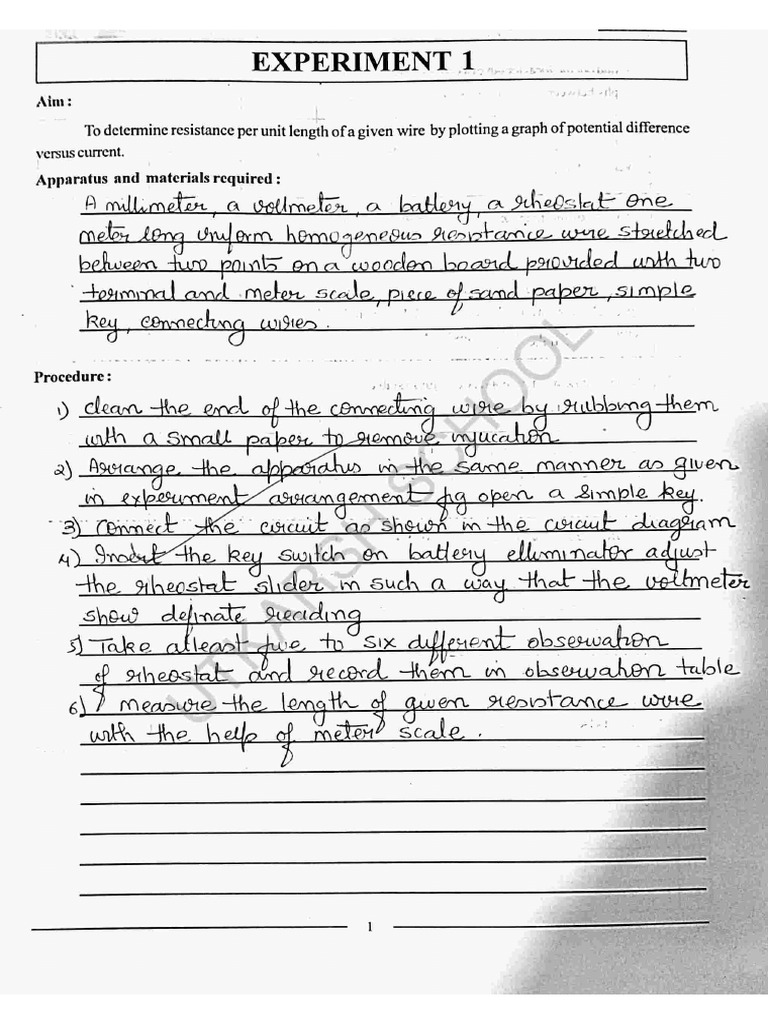 EXPERIMENT 1
Aim :
To determine resistance per unit length of a given wire by plotting a graph of potential difference
versus current.
Apparatus and materials required :
A millimeter, a voltmeter, a battery, a rheostat one
meter long uniform homogeneous resistance wire stretched
between two points on a wooden board provided with two
terminal and meter scale, piece of sand paper, simple
key, connecting wires.
Procedure :
1) clean the end of the connecting wire by rubbing them
with a small paper to remove
2) Arrange the apparatus in the same manner as given
in experiment arrangement fig open a simple key.
3) Connect the circuit as shown in the circuit diagram
4) Insert the key switch on battery elluminator adjust
the rheostat slider in such a way that the voltmeter
show definate reading
5) Take atleast five to six different observation
of rheostat and record them in observation table
6) measure the length of given resistance wire
with the help of meter scale.
UTKARSH SCHOOL
1